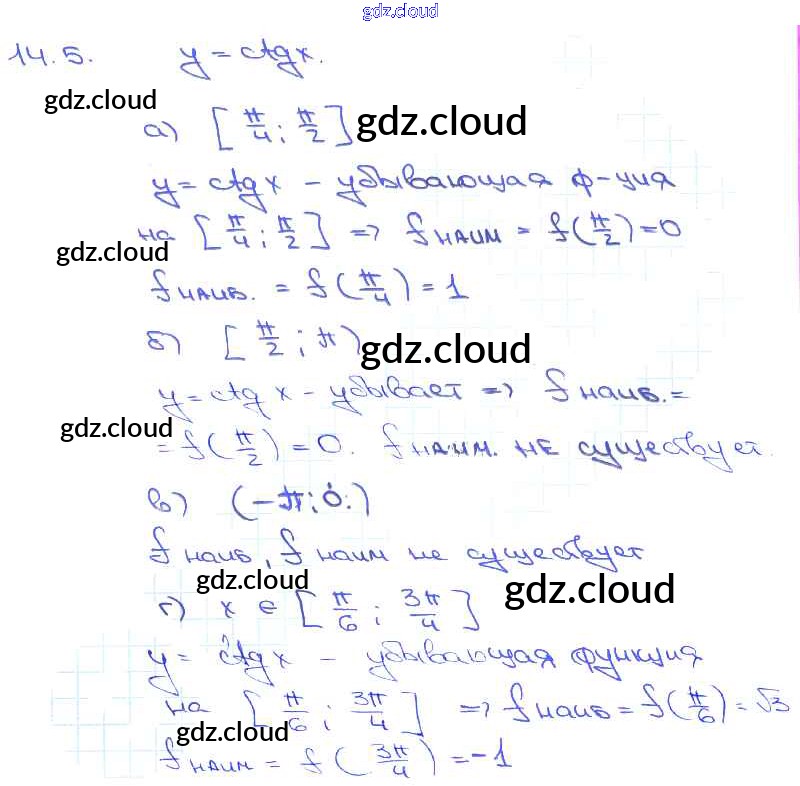 gdz.cloud
14.5. y = ctgx.
gdz.cloud
а) [π/4; π/2] gdz.cloud
y = ctgx - убывающая ф-ция
на [π/4; π/2] => fнаим = f(π/2) = 0
gdz.cloud
fнаиб. = f(π/4) = 1
б) [π/2; π) gdz.cloud
y = ctgx - убывает => fнаиб. =
gdz.cloud
= f(π/2) = 0. fнаим. не существует.
в) (-π; 0.)
fнаиб, fнаим не существует
gdz.cloud gdz.cloud
г) x ∈ [π/6; 3π/4]
y = ctgx - убывающая функция
на [π/6; 3π/4] => fнаиб = f(π/6) = √3
gdz.cloud
fнаим = f(3π/4) = -1